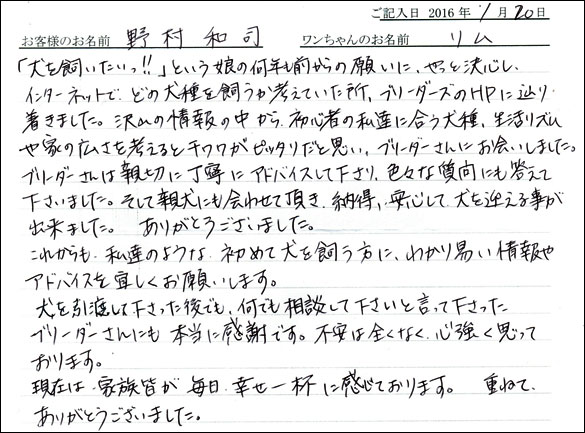 ご記入日 2016 年 1 月 20 日
お客様のお名前 野村 和司 ワンちゃんのお名前 リム
「犬を飼いたいっ!!」という娘の何年も前からの願いに、やっと決心し、
インターネットで、どの犬種を飼うか考えていた所、ブリーダーズのHPに辿り
着きました。沢山の情報の中から、初心者の私達に合う犬種、生活リズム
や家の広さを考えるとチワワがピッタリだと思い、ブリーダーさんにお会いしました。
ブリーダーさんは親切に丁寧にアドバイスして下さり、色々な質問にも答えて
下さいました。そして親犬にも会わせて頂き、納得、安心して犬を迎える事が
出来ました。 ありがとうございました。
これからも、私達のような、初めて犬を飼う方に、わかり易い情報や
アドバイスを宜しくお願いします。
犬を引渡して下さった後でも、何でも相談して下さいと言って下さった
ブリーダーさんにも本当に感謝です。不安は全くなく、心強く思って
おります。
現在は、家族皆が毎日、幸せ一杯に感じております。 重ねて、
ありがとうございました。